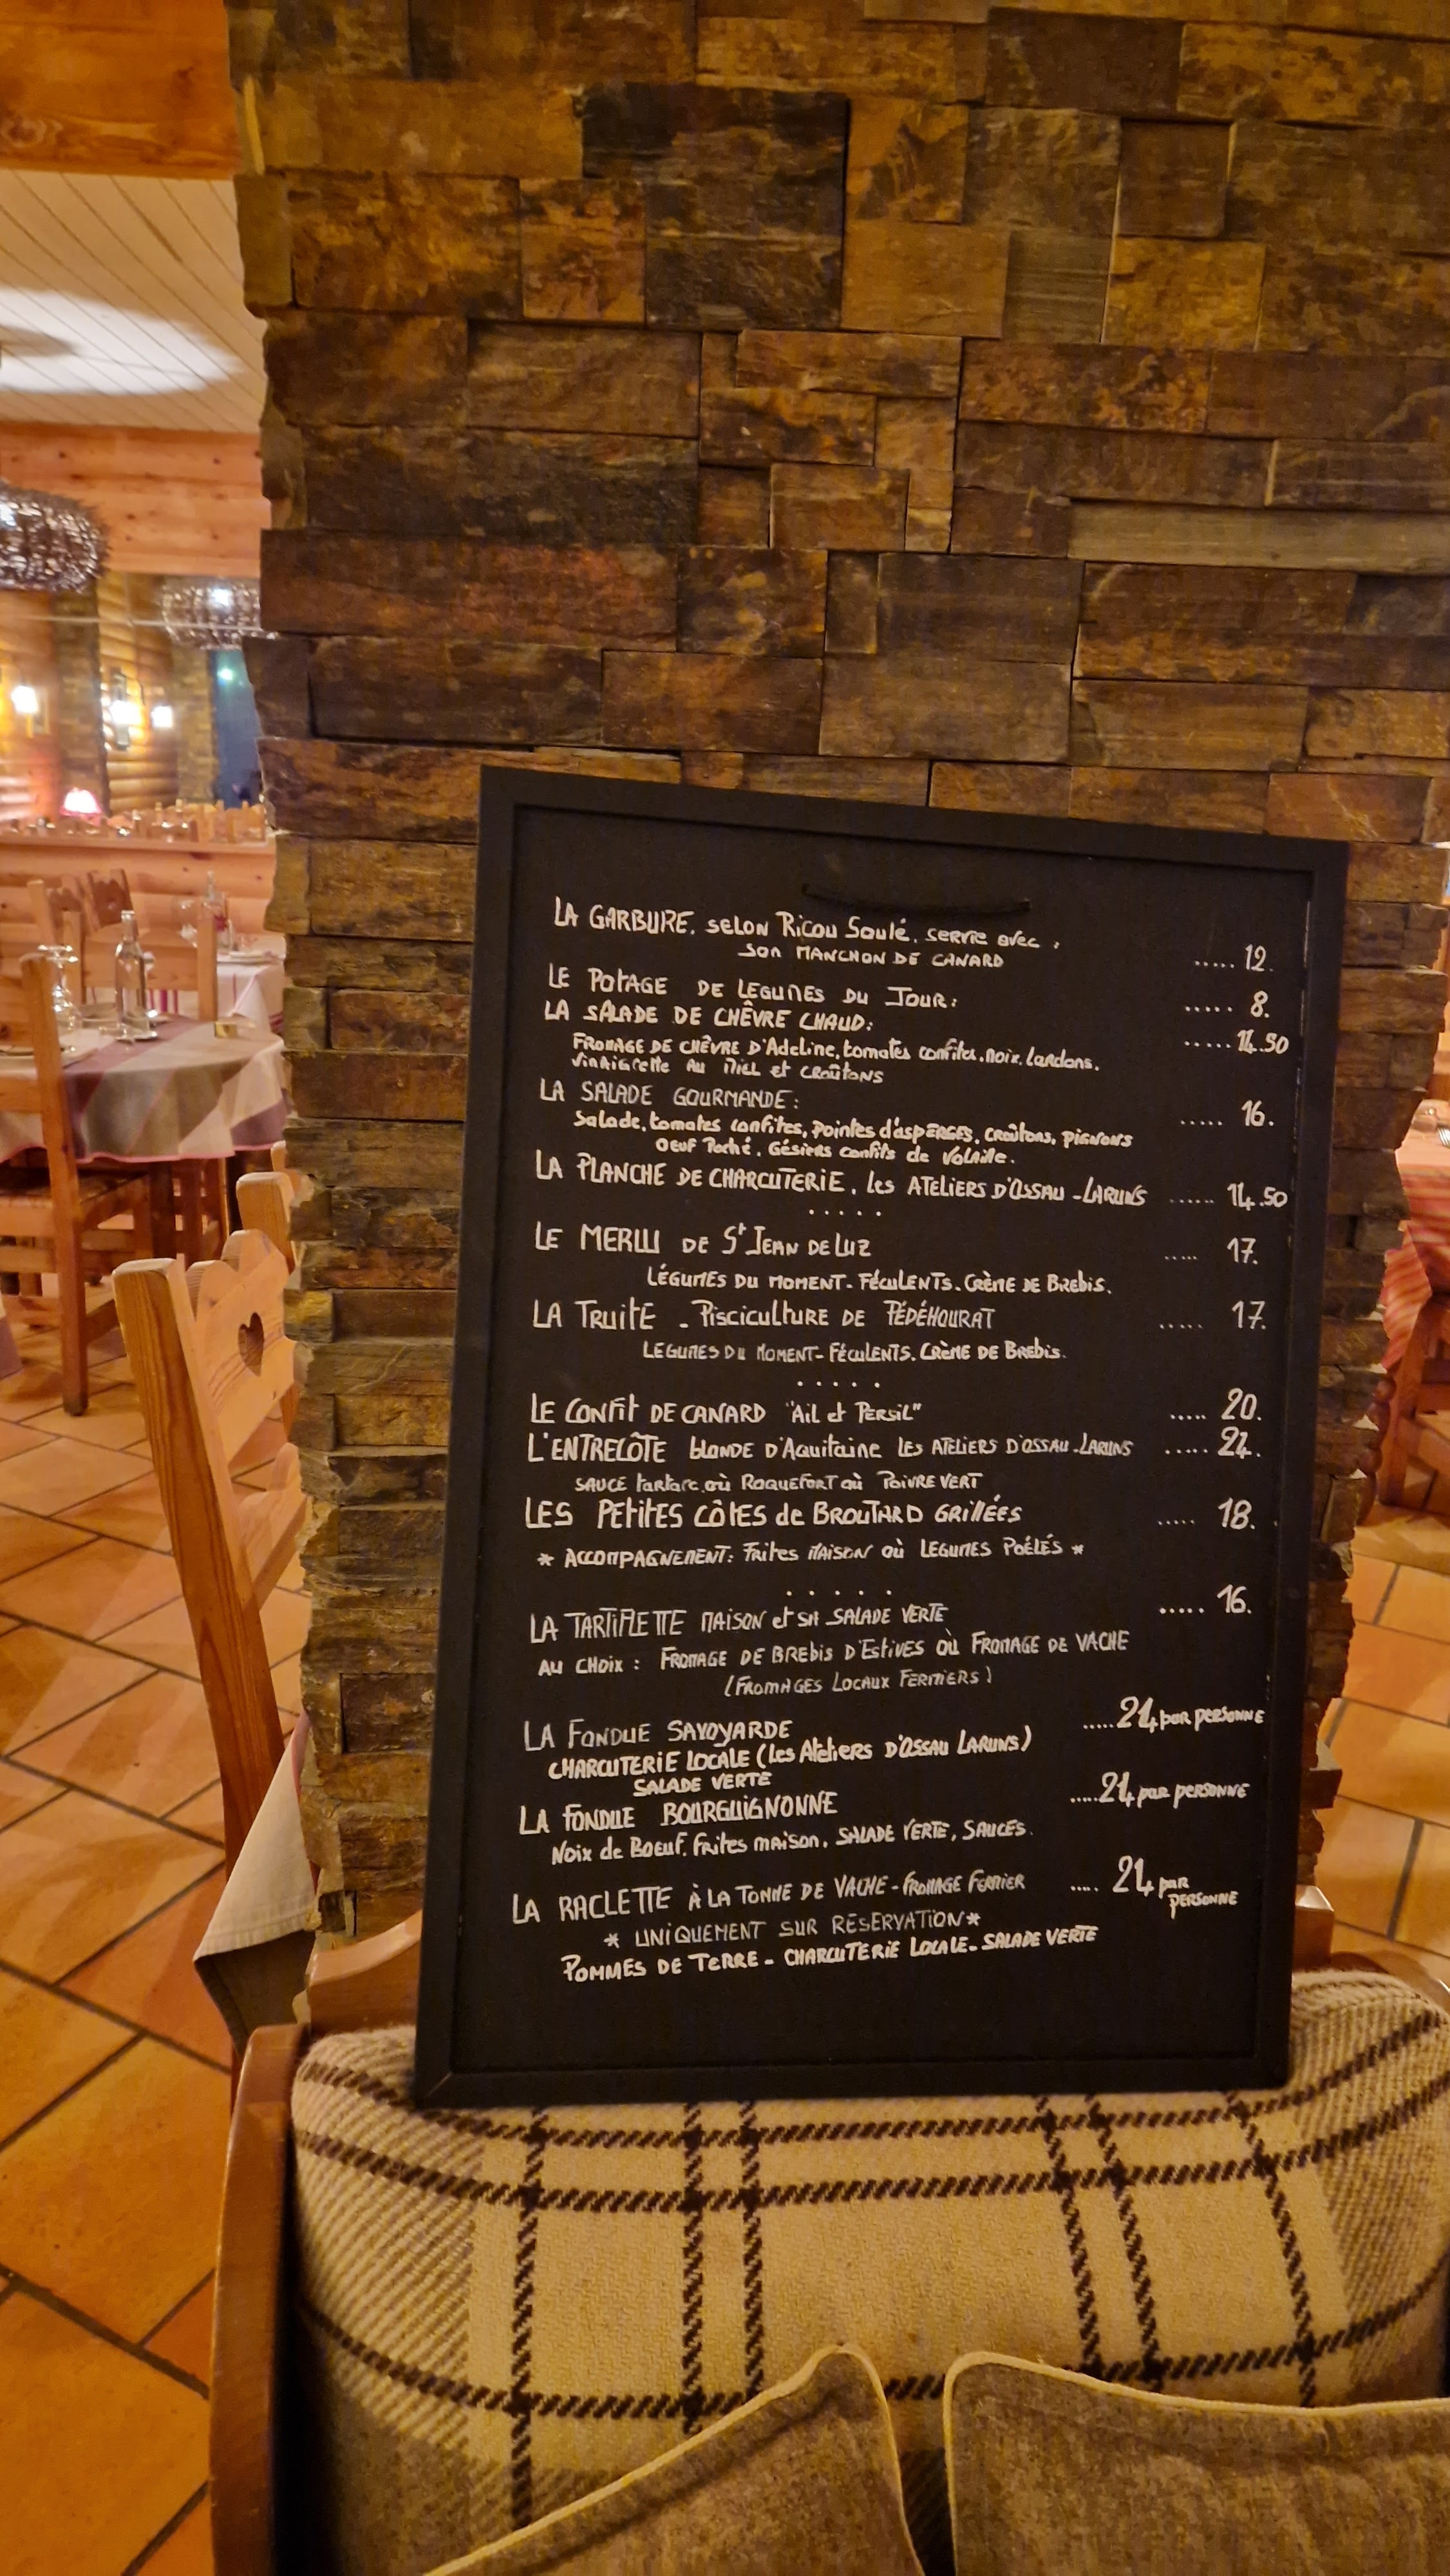 LA GARBURE, selon Ricou Soulé, servie avec :
son MANCHON DE CANARD ..... 12.
LE POTAGE DE LEGUMES DU JOUR: ..... 8.
LA SALADE DE CHÊVRE CHAUD: ..... 14.50
FROMAGE DE CHÊVRE D'Adeline, tomates confites, noix, lardons,
vinaigrette AU MIEL et CROÛTONS
LA SALADE GOURMANDE: ..... 16.
Salade, tomates confites, pointes d'asperges, croûtons, pignons
oeuf Poché, Gésiers confits de Volaille.
LA PLANCHE DE CHARCUTERIE, les ATELIERS D'OSSAU-LARUNS ..... 14.50
.....
LE MERLU DE St JEAN DE LUZ ..... 17.
LÉGUMES DU MOMENT- FÉCULENTS- CRÈME DE BREBIS.
LA TRUITE - PISCICULTURE DE PÉDÉHOURAT ..... 17.
LEGUMES DU MOMENT- FÉCULENTS. CRÈME DE BREBIS.
.....
LE CONFIT DE CANARD "Ail et PERSIL" ..... 20.
L'ENTRECÔTE blonde D'Aquitaine LES ATELIERS D'OSSAU-LARUNS ..... 24.
SAUCE tartare où ROQUEFORT où POIVRE VERT
LES PETITES CÔTES de BROUTARD GRILLÉES ..... 18.
* ACCOMPAGNEMENT: Frites MAISON où LEGUMES POÊLÉS *
.....
LA TARTIFLETTE MAISON et SA SALADE VERTE ..... 16.
AU CHOIX : FROMAGE DE BREBIS D'ESTIVES OÙ FROMAGE DE VACHE
(FROMAGES LOCAUX FERMIERS)
LA FONDUE SAVOYARDE ..... 24 par personne
CHARCUTERIE LOCALE (Les Ateliers D'OSSAU LARUNS)
SALADE VERTE
LA FONDUE BOURGUIGNONNE ..... 24 par personne
Noix de Boeuf, frites maison, SALADE VERTE, SAUCES.
LA RACLETTE À LA TOMME DE VACHE - FROMAGE FERMIER ..... 24 par
PERSONNE
* UNIQUEMENT SUR RESERVATION*
POMMES DE TERRE - CHARCUTERIE LOCALE - SALADE VERTE